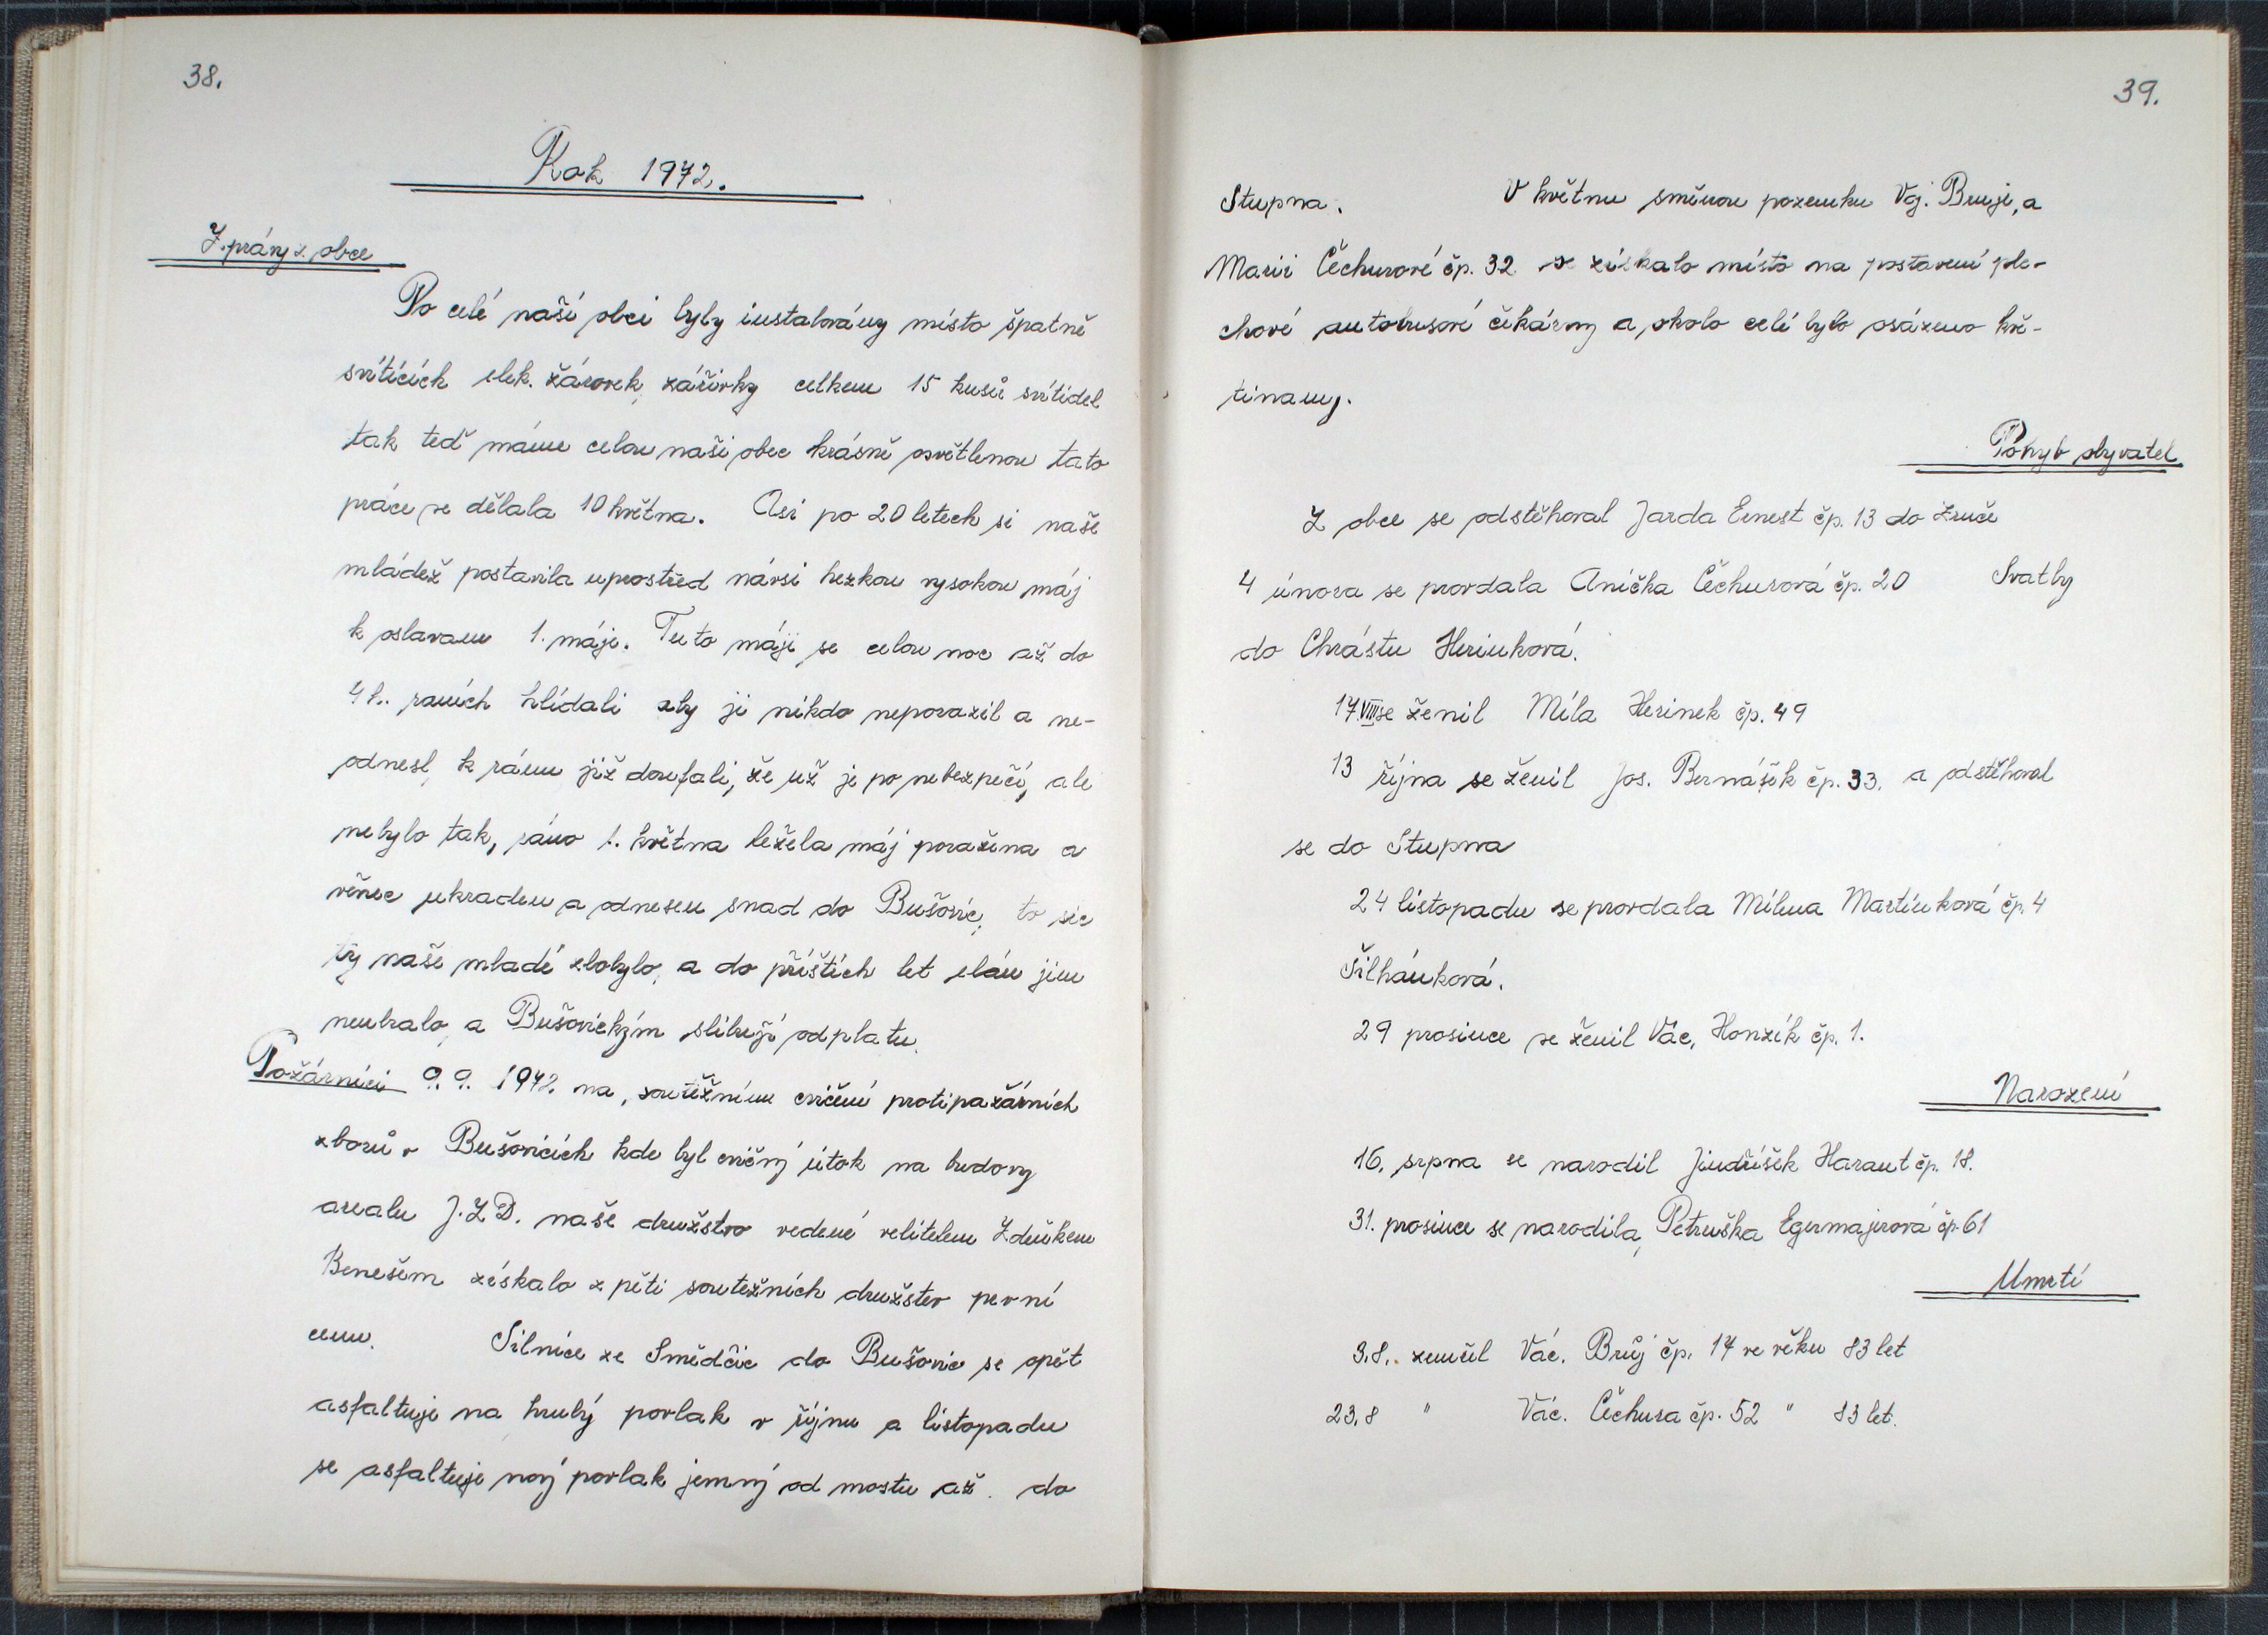 38.
Rok 1972.
Zprávy z obce
Po celé naší obci byly instalovány místo špatně
svítících elek. žárovek, zářivky celkem 15 kusů svítidel
tak teď máme celou naši obec krásně osvětlenou tato
práce se dělala 10 května. Asi po 20 letech si naše
mládež postavila uprostřed návsi hezkou vysokou máj
k oslavam 1. máje. Tuto máji se celou noc až do
4 h.. raních hlídali aby ji nikdo neporazil a ne-
odnesl, k ránu již doufali, že už je po nebezpečí, ale
nebylo tak, ráno 1. května ležela máj poražena a
věnec ukraden a odnesen snad do Bušovic, to sic
ty naše mladé zlobylo, a do příštích let elán jim
neubralo, a Bušovickým slibují odplatu.
Požárníci 9. 9. 1972. na, soutěžním cvičení protipažárních
zborů v Bušovicích kde byl cvičný útok na budovy
arealu J.Z.D. naše družstvo vedené velitelem Zdeňkem
Benešem získalo z pěti soutežních družstev první
cenu. Silnice ze Smědčic do Bušovic se opět
asfaltuje na hrubý povlak v říjnu a listopadu
se asfaltuje nový povlak jemný od mostu až. do
39.
Stupna. V květnu směnou pozemku Voj. Bruje, a
Marii Čechurové čp. 32 se získalo místo na postavení ple-
chové autobusové čekárny a okolo celé bylo osázeno kvě-
tinamy.
Pohyb obyvatel
Z obce se odstěhoval Jarda Ernest čp. 13 do Zruče
4 února se provdala Anička Čechurová čp. 20 Svatby
do Chrástu Herinková.
17.VIII se ženil Míla Herinek čp. 49
13 října se ženil Jos. Bernášek čp. 33. a odstěhoval
se do Stupna
24 listopadu se provdala Milena Martínková čp. 4
Šilhánková.
29 prosince se ženil Vác, Honzík čp. 1.
Narození
16. srpna se narodil Jindříšek Haraut čp. 18.
31. prosince se narodila, Petruška Egermajerová čp. 61
Umrtí
3.8.. zemřel Vác. Brůj čp. 14 ve věku 83 let
23.8 " Vác. Čechura čp. 52 " 83 let.